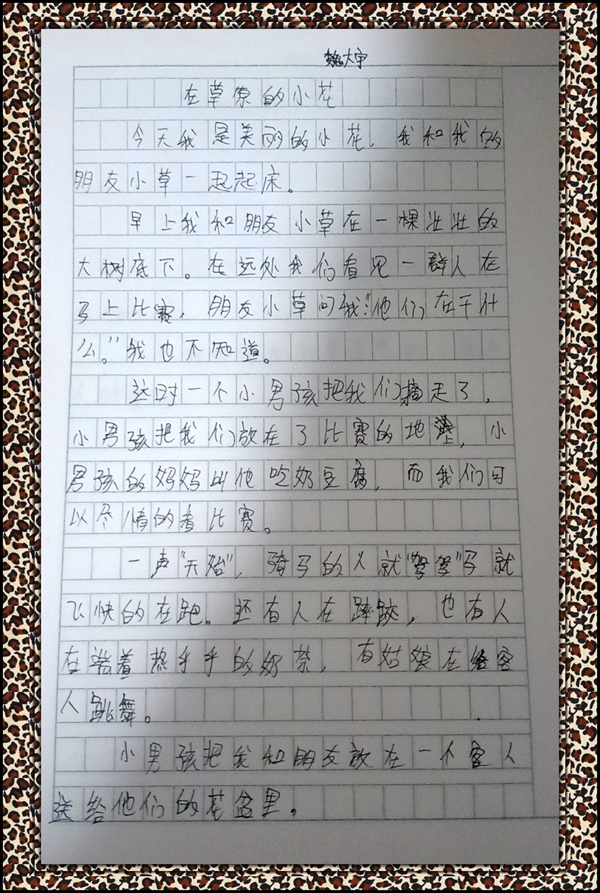 魏大宇
在草原的小花
今天我是美丽的小花，我和我的
朋友小草一起起床。
早上我和朋友小草在一棵壮壮的
大树底下。在远处我们看见一群人在
马上比赛，朋友小草问我：“他们在干什
么。”我也不知道。
这时一个小男孩把我们摘走了，
小男孩把我们放在了比赛的地 ，小
男孩的妈妈叫他吃奶豆腐，而我们可
以尽情的看比赛。
一声“开始”，骑马的人就“驾驾”马就
飞快的在跑。还有人在摔跤，也有人
在端着热乎乎的奶茶，有姑娘在给客
人跳舞。
小男孩把我和朋友放在一个客人
送给他们的花盆里。